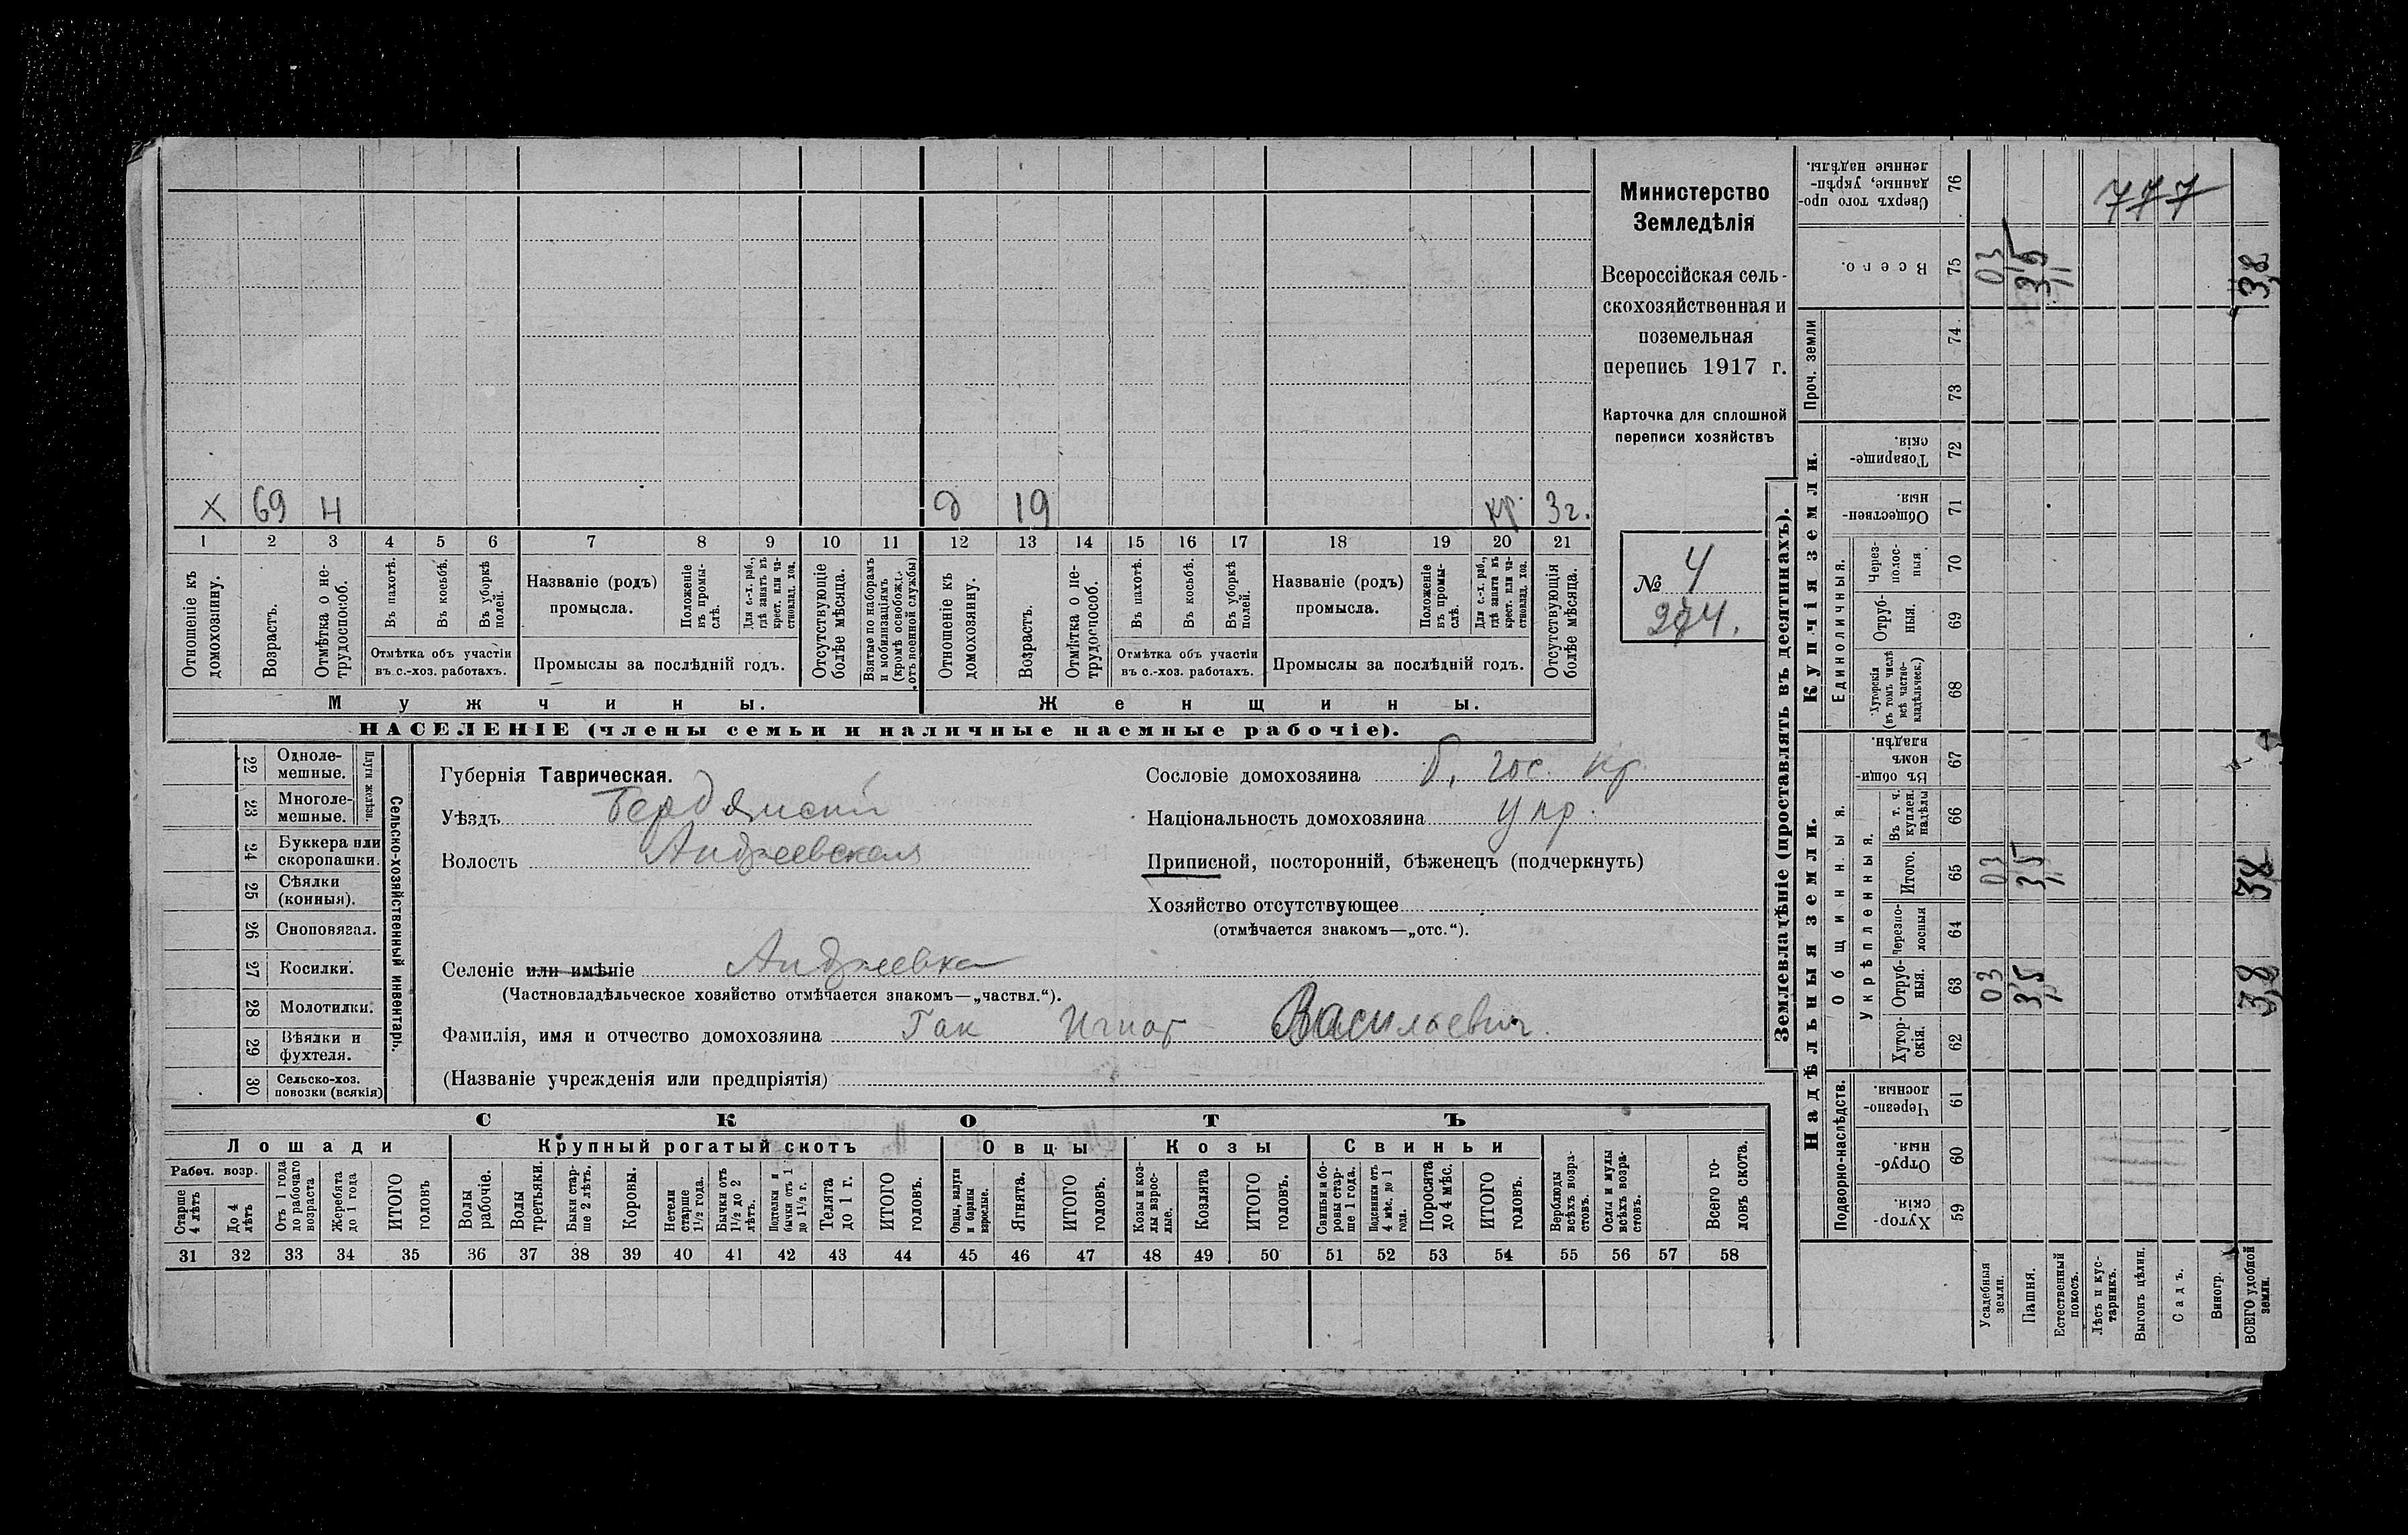 Министерство
Земледѣлія
Всероссійская сель-
скохозяйственная и
поземельная
перепись 1917 г.
Карточка для сплошной
переписи хозяйствъ
№ 4
274.
х 69 н д 19 кр. 3 г.
1 2 3 4 5 6 7 8 9 10 11 12 13 14 15 16 17 18 19 20 21
Отношеніе къ домохозяину.
Возрастъ.
Отмѣтка о не-трудоспособ.
Въ пахотѣ.
Въ косьбѣ.
Въ уборкѣ полей.
Отмѣтка объ участіи въ с.-хоз. работахъ.
Названіе (родъ) промысла.
Положеніе въ промы-слѣ.
Для с.-х. раб., гдѣ занятъ въ крест. или ча-стновлад. хоз.
Промыслы за послѣдній годъ.
Отсутствующіе болѣе мѣсяца.
Взятые по наборамъ и мобилизаціямъ (кромѣ освобожд. отъ военной службы)
Отношеніе къ домохозяину.
Возрастъ.
Отмѣтка о не-трудоспособ.
Въ пахотѣ.
Въ косьбѣ.
Въ уборкѣ полей.
Отмѣтка объ участіи въ с.-хоз. работахъ.
Названіе (родъ) промысла.
Положеніе въ промы-слѣ.
Для с.-х. раб., гдѣ занята въ крест. или ча-стновлад. хоз.
Промыслы за послѣдній годъ.
Отсутствующія болѣе мѣсяца.
Мужчины. Женщины.
НАСЕЛЕНІЕ (члены семьи и наличные наемные рабочіе).
Сельско-хозяйственный инвентарь.
Плуги желѣзн.
22 Одноле-мешные.
23 Многоле-мешные.
24 Буккера или скоропашки.
25 Сѣялки (конныя).
26 Сноповязал.
27 Косилки.
28 Молотилки.
29 Вѣялки и фухтеля.
30 Сельско-хоз. повозки (всякія)
Губернія Таврическая.
Уѣздъ Бердянскій
Волость Андреевская
Селеніе или имѣніе Андреевка
(Частновладѣльческое хозяйство отмѣчается знакомъ—„частвл.“).
Фамилія, имя и отчество домохозяина Гак Игнат Васильевич.
(Названіе учрежденія или предпріятія)
Сословіе домохозяина б. гос. кр.
Національность домохозяина укр.
Приписной, посторонній, бѣженецъ (подчеркнуть)
Хозяйство отсутствующее
(отмѣчается знакомъ—„отс.“).
СКОТЪ
Лошади Крупный рогатый скотъ Овцы Козы Свиньи
Рабоч. возр.
Старше 4 лѣтъ
До 4 лѣтъ
Отъ 1 года до рабочаго возраста
Жеребята до 1 года
ИТОГО головъ
Волы рабочіе.
Волы третьяки.
Быки стар-ше 2 лѣтъ.
Коровы.
Нетели старше 1½ года.
Бычки отъ 1½ до 2 лѣтъ.
Подтелки и бычки отъ 1 до 1½ г.
Телята до 1 г.
ИТОГО головъ.
Овцы, валухи и бараны взрослые.
Ягнята.
ИТОГО головъ.
Козы и коз-лы взрос-лые.
Козлята
ИТОГО головъ.
Свиньи и бо-ровы стар-ше 1 года.
Подсвинки отъ 4 мѣс. до 1 года.
Поросята до 4 мѣс.
ИТОГО головъ.
Верблюды всѣхъ возра-стовъ.
Ослы и мулы всѣхъ возра-стовъ.
Всего го-ловъ скота.
31 32 33 34 35 36 37 38 39 40 41 42 43 44 45 46 47 48 49 50 51 52 53 54 55 56 57 58
Землевладѣніе (проставлять въ десятинахъ).
Надѣльныя земли. Купчія земли. Проч. земли
Подворно-наслѣдств.
Общинныя.
Укрѣпленныя.
Единоличныя.
59 Хутор-скія.
60 Отруб-ныя.
61 Черезпо-лосныя.
62 Хутор-скія.
63 Отруб-ныя. 03 3,5 3,8
64 Черезпо-лосныя
65 Итого. 03 3,5 3,8
66 Въ т. ч. куплен. надѣлы
67 Въ общи-номъ владѣн.
68 Хуторскія (въ томъ числѣ всѣ частно-владѣльческ.)
69 Отруб-ныя.
70 Через-полос-ныя
71 Обществен-ныя.
72 Товарище-скія.
73
74
75 Всего. 03 3,5 3,8
76 Сверхъ того про-данные, укрѣп-ленные надѣлы.
777
Усадебныя земли.
Пашня.
Естественный покосъ.
Лѣсъ и кус-тарникъ.
Выгонъ цѣлин.
Садъ.
Виногр.
ВСЕГО удобной земли.